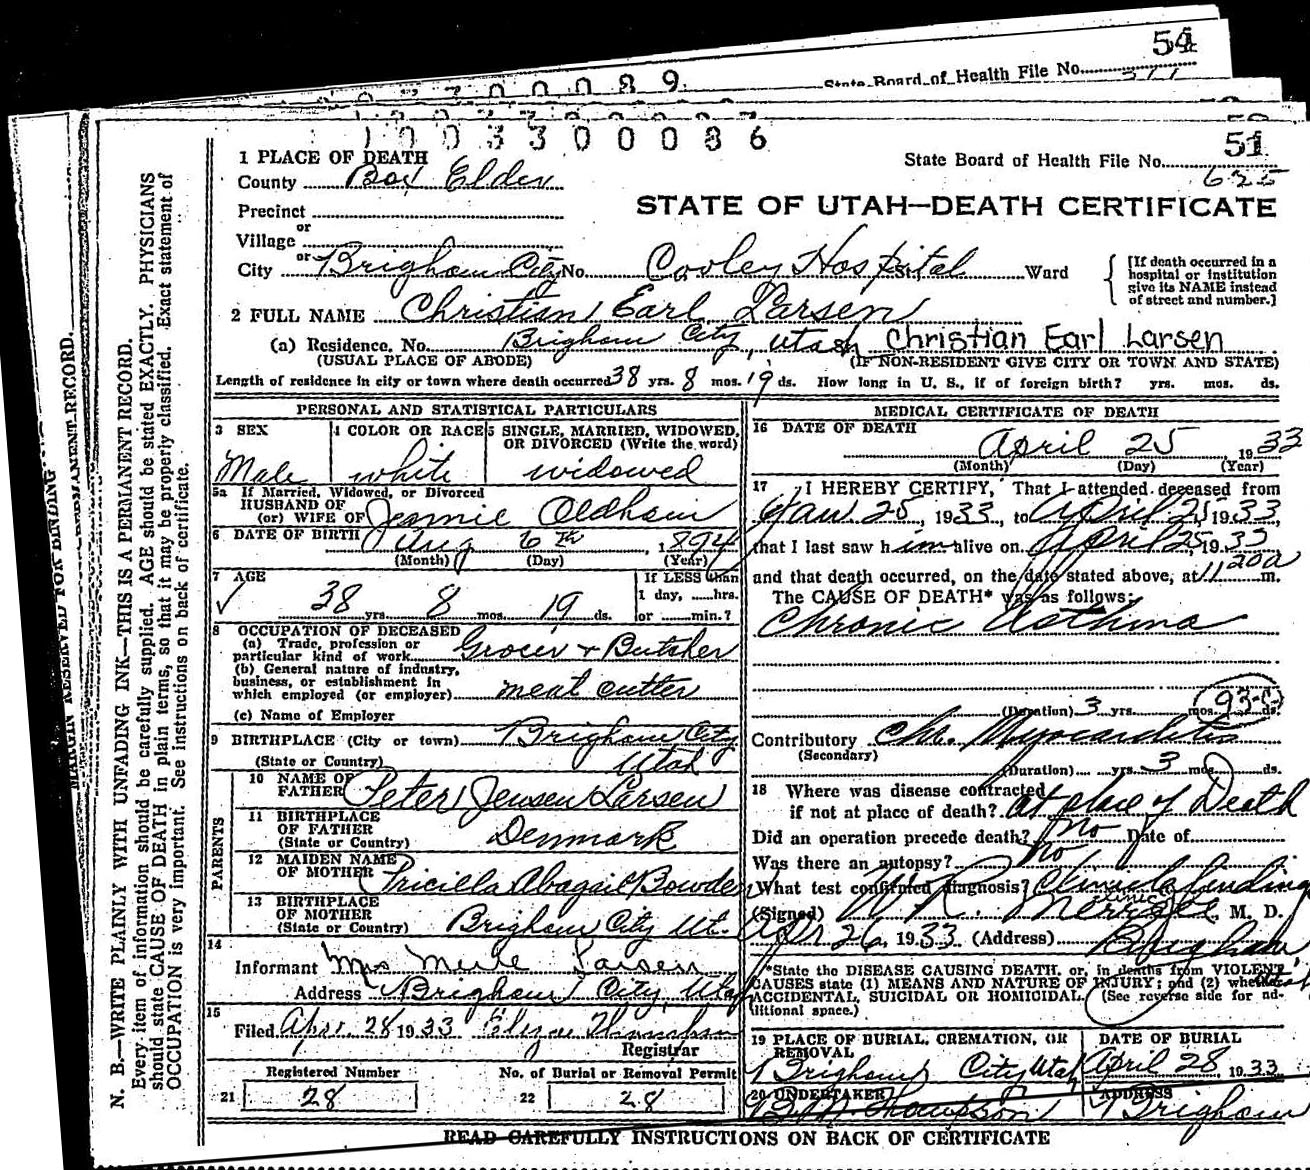 54
State Board of Health File No.
1003300086
51
State Board of Health File No.
625
1 PLACE OF DEATH
County Box Elder
STATE OF UTAH—DEATH CERTIFICATE
Precinct
or
Village
or
City Brigham City No. Cooley Hospital St. Ward
[If death occurred in a hospital or institution give its NAME instead of street and number.]
2 FULL NAME Christian Earl Larsen
(a) Residence. No. Brigham City, Utah Christian Earl Larsen
(USUAL PLACE OF ABODE) (IF NON-RESIDENT GIVE CITY OR TOWN AND STATE)
Length of residence in city or town where death occurred 38 yrs. 8 mos. 19 ds. How long in U. S., if of foreign birth? yrs. mos. ds.
PERSONAL AND STATISTICAL PARTICULARS
3 SEX
Male
4 COLOR OR RACE
white
5 SINGLE, MARRIED, WIDOWED,
OR DIVORCED (Write the word)
widowed
5a If Married, Widowed, or Divorced
HUSBAND OF
(or) WIFE OF Jennie Oldham
6 DATE OF BIRTH Aug 6th, 1894
(Month) (Day) (Year)
7 AGE
38 yrs. 8 mos. 19 ds.
If LESS than
1 day, ......hrs.
or ......min.?
8 OCCUPATION OF DECEASED
(a) Trade, profession or
particular kind of work Grocer + Butcher
(b) General nature of industry,
business, or establishment in
which employed (or employer) meat cutter
(c) Name of Employer
9 BIRTHPLACE (City or town) Brigham City
(State or Country) Utah
PARENTS
10 NAME OF
FATHER Peter Jensen Larsen
11 BIRTHPLACE
OF FATHER
(State or Country) Denmark
12 MAIDEN NAME
OF MOTHER Pricilla Abagail Bowden
13 BIRTHPLACE
OF MOTHER
(State or Country) Brigham City Ut.
14
Informant Mrs Merle Larsen
Address Brigham City, Utah
15
Filed Apr. 28 1933
Registrar
Registered Number
21 28
No. of Burial or Removal Permit
22 28
MEDICAL CERTIFICATE OF DEATH
16 DATE OF DEATH
April 25 1933
(Month) (Day) (Year)
17 I HEREBY CERTIFY, That I attended deceased from
Jan. 25, 1933, to April 25, 1933,
that I last saw him alive on April 25, 1933
and that death occurred, on the date stated above, at 11 20a m.
The CAUSE OF DEATH* was as follows:
Chronic Asthma
(Duration) 3 yrs. mos. ds.
93-C
Contributory Chr. Myocarditis
(Secondary)
(Duration) yrs. 3 mos. ds.
18 Where was disease contracted
if not at place of death? At place of Death
Did an operation precede death? No Date of
Was there an autopsy? No
What test confirmed diagnosis? Clinical findings
(Signed) W R. Merrell, M. D.
Apr 26, 1933 (Address) Brigham
*State the DISEASE CAUSING DEATH, or, in deaths from VIOLENT
CAUSES state (1) MEANS AND NATURE OF INJURY; and (2) whether
ACCIDENTAL, SUICIDAL OR HOMICIDAL. (See reverse side for additional space.)
19 PLACE OF BURIAL, CREMATION, OR
REMOVAL
Brigham City Utah
DATE OF BURIAL
April 28, 1933
20 UNDERTAKER
Thompson
ADDRESS
Brigham
READ CAREFULLY INSTRUCTIONS ON BACK OF CERTIFICATE
MARGIN RESERVED FOR BINDING
N. B.—WRITE PLAINLY WITH UNFADING INK—THIS IS A PERMANENT RECORD.
Every item of information should be carefully supplied. AGE should be stated EXACTLY. PHYSICIANS
should state CAUSE OF DEATH in plain terms, so that it may be properly classified. Exact statement of
OCCUPATION is very important. See instructions on back of certificate.